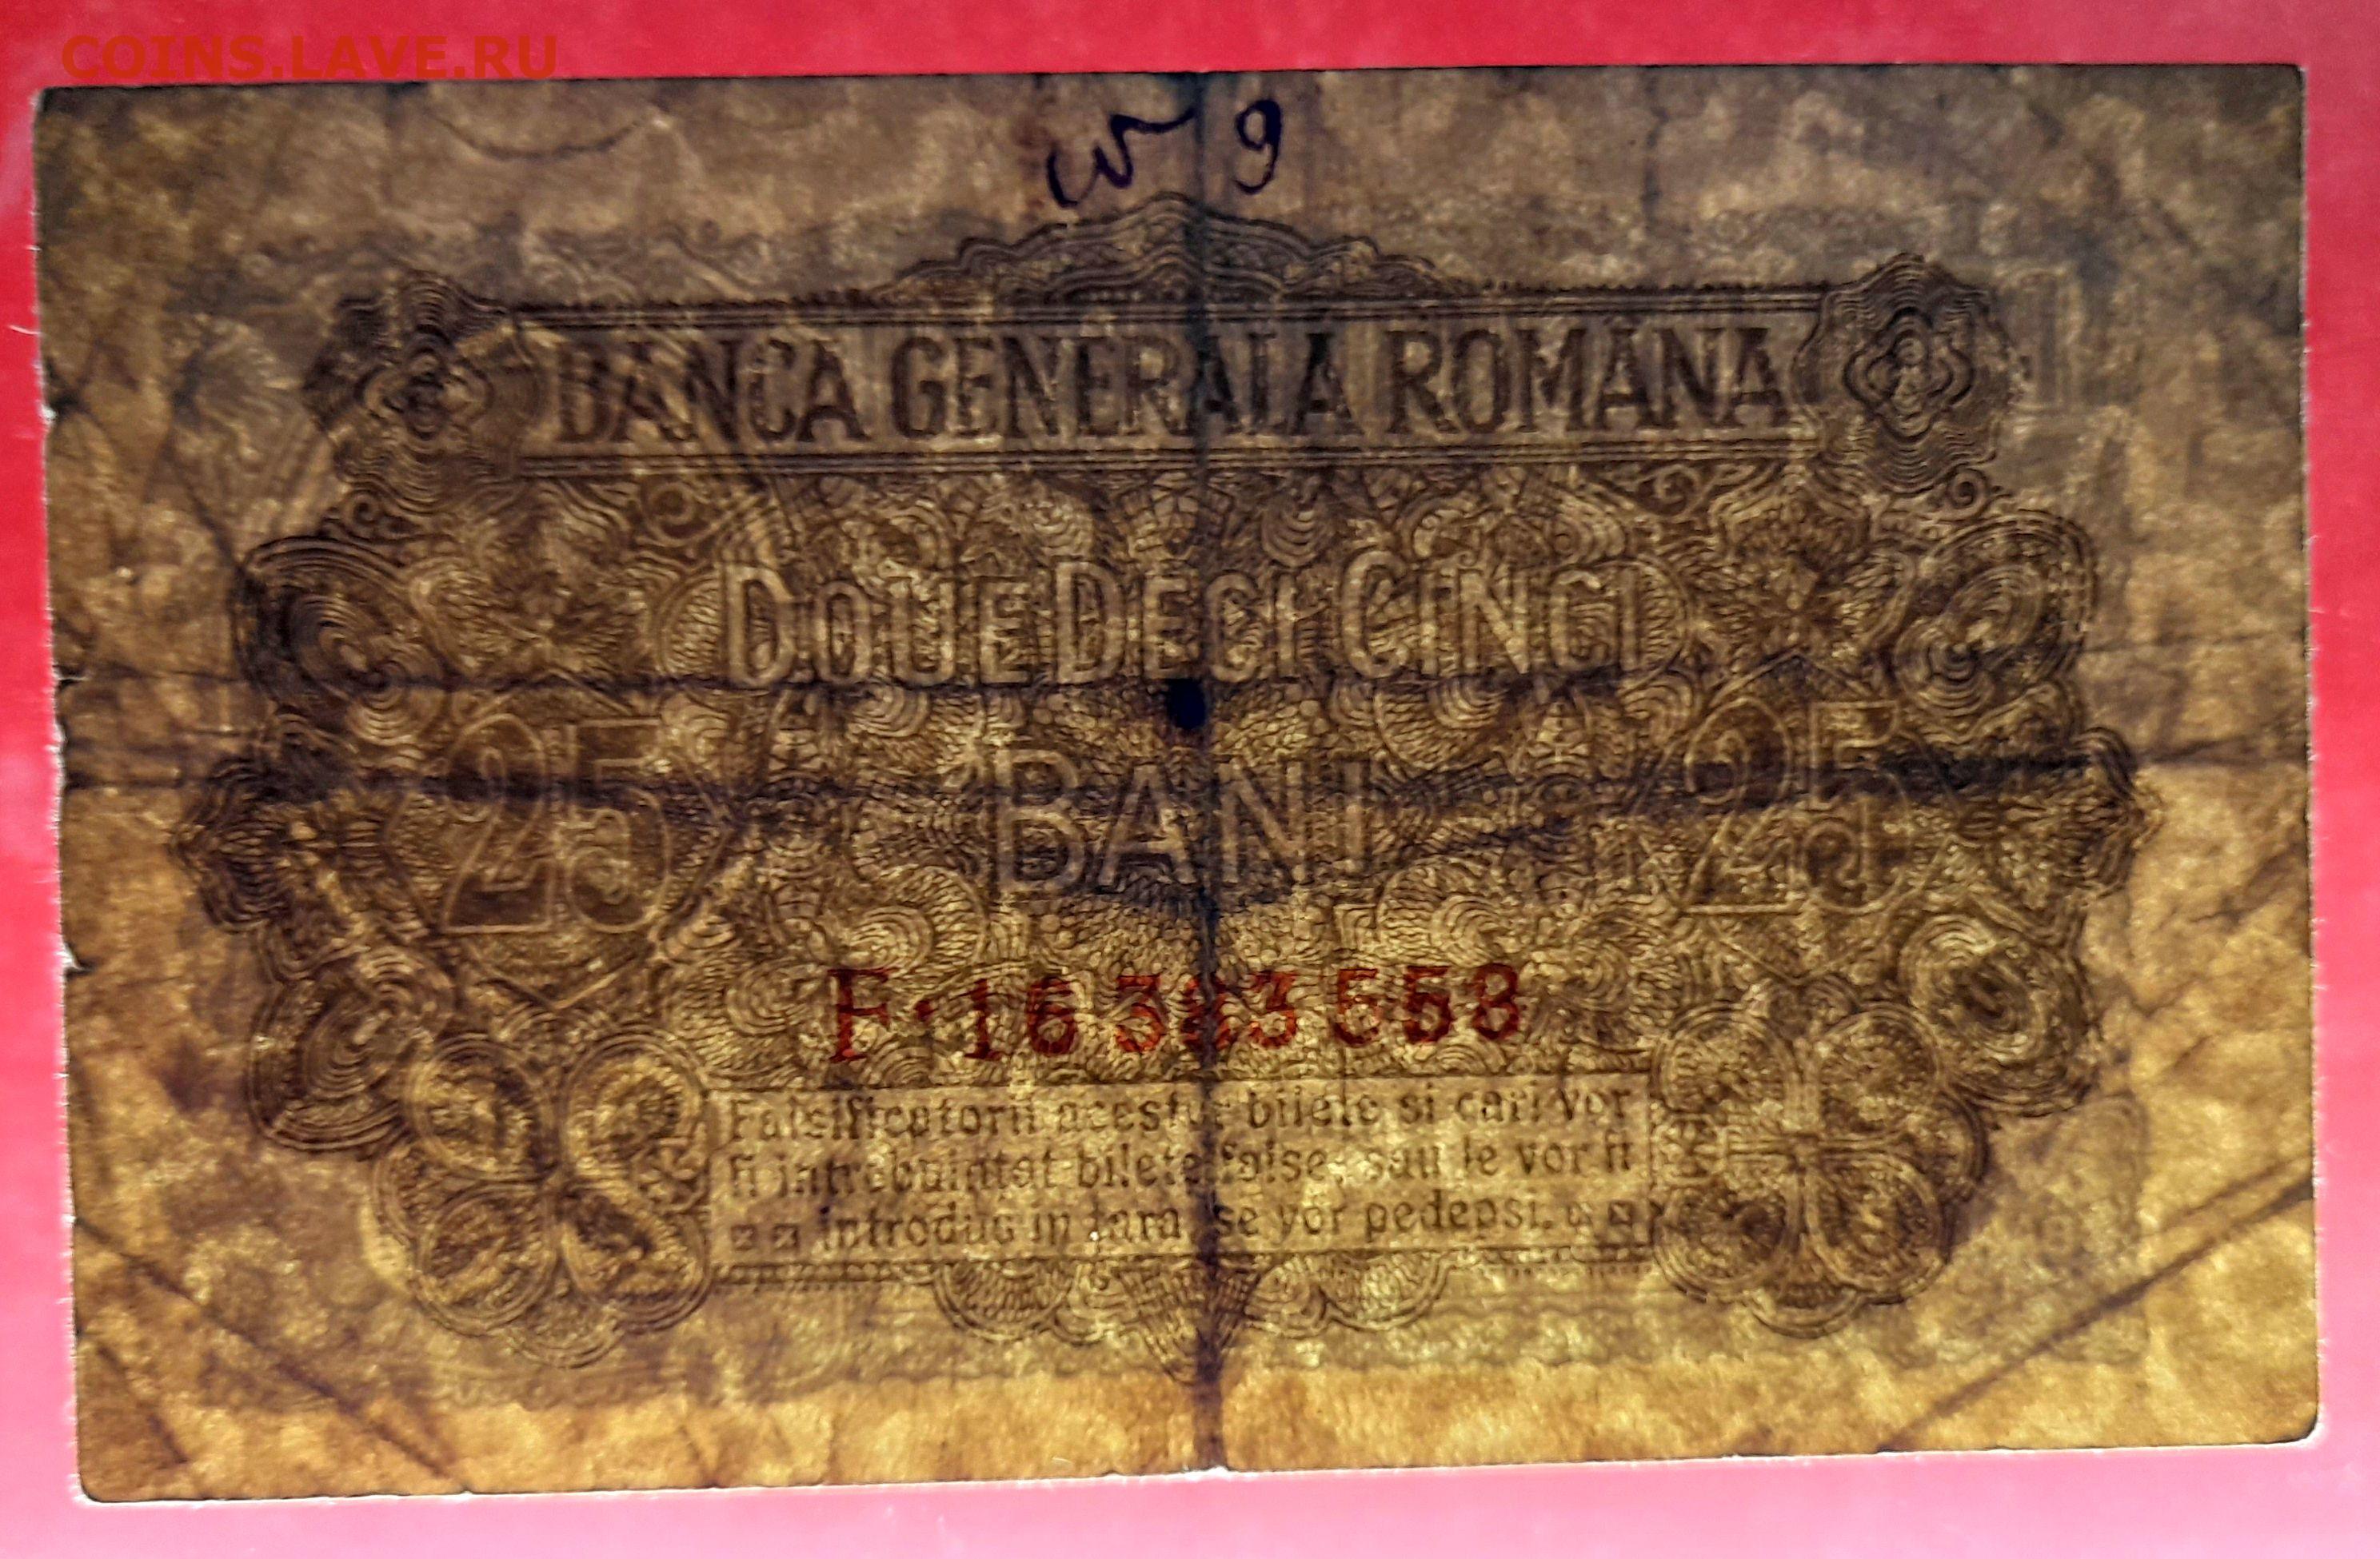 COINS.LAVE.RU
9
BANCA GENERALĂ ROMÂNĂ
DOUEDECI CINCI
25 BANI 25
F·16383558
Falsificatorii acestor bilete si cari vor
fi intrebuintat bilete false, sau le vor fi
introdus in tara se vor pedepsi.